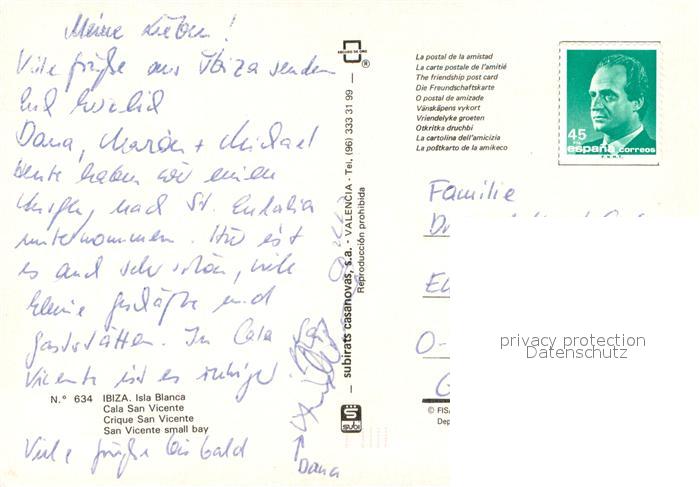 Meine Lieben!
Viele Grüße aus Ibiza senden
Euch herzlich
Dana, Marion + Michael
Heute haben wir einen
Ausflug nach St. Eulalia
unternommen. Hier ist
es auch sehr schön, viele
kleine Geschäfte und
Gaststätten. In Cala
Vicente ist es ruhiger
N.° 634 IBIZA. Isla Blanca
Cala San Vicente
Crique San Vicente
San Vicente small bay
Viele Grüße bis bald
Dana
subirats casanovas, s.a. - VALENCIA - Tel. (96) 333 31 99 -
Reproducción prohibida
®
La postal de la amistad
La carte postale de l'amitié
The friendship post card
Die Freundschaftskarte
O postal de amizade
Vänskäpens vykort
Vriendelyke groeten
Otkritka druchbi
La cartolina dell'amicizia
La poŝtkarto de la amikeco
45
PTA
españa correos
F.N.M.T.
Familie
O-
privacy protection
Datenschutz
© FISA
Dep